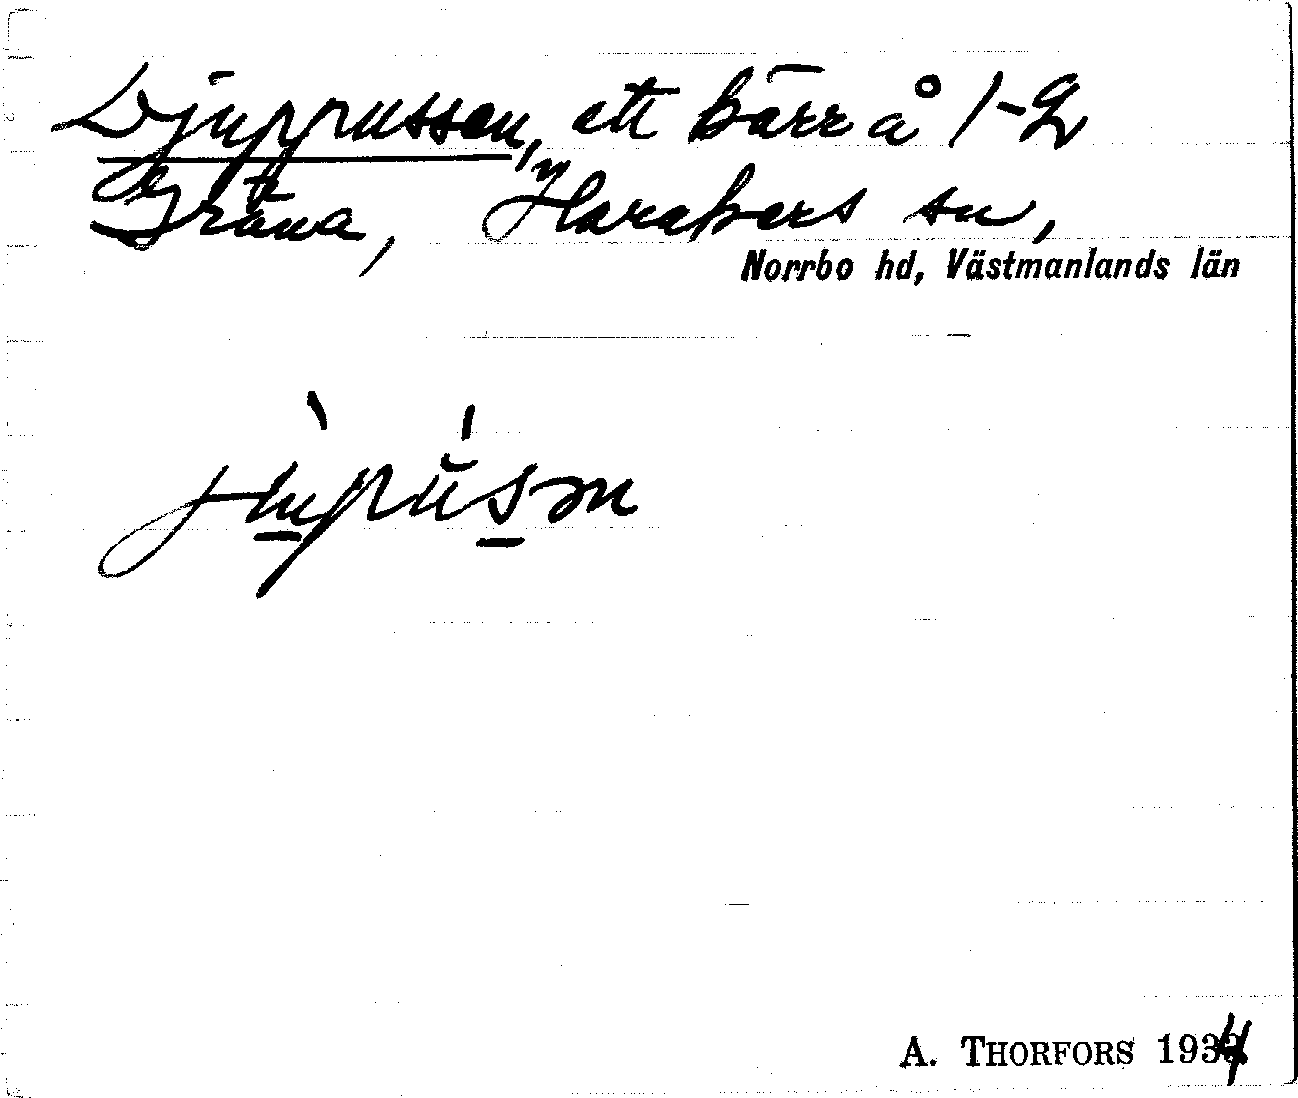 Djuprussen, ett kärr å 1-2
Gräna, Haraker sn,
Norrbo hd, Västmanlands län
A. THORFORS 1934